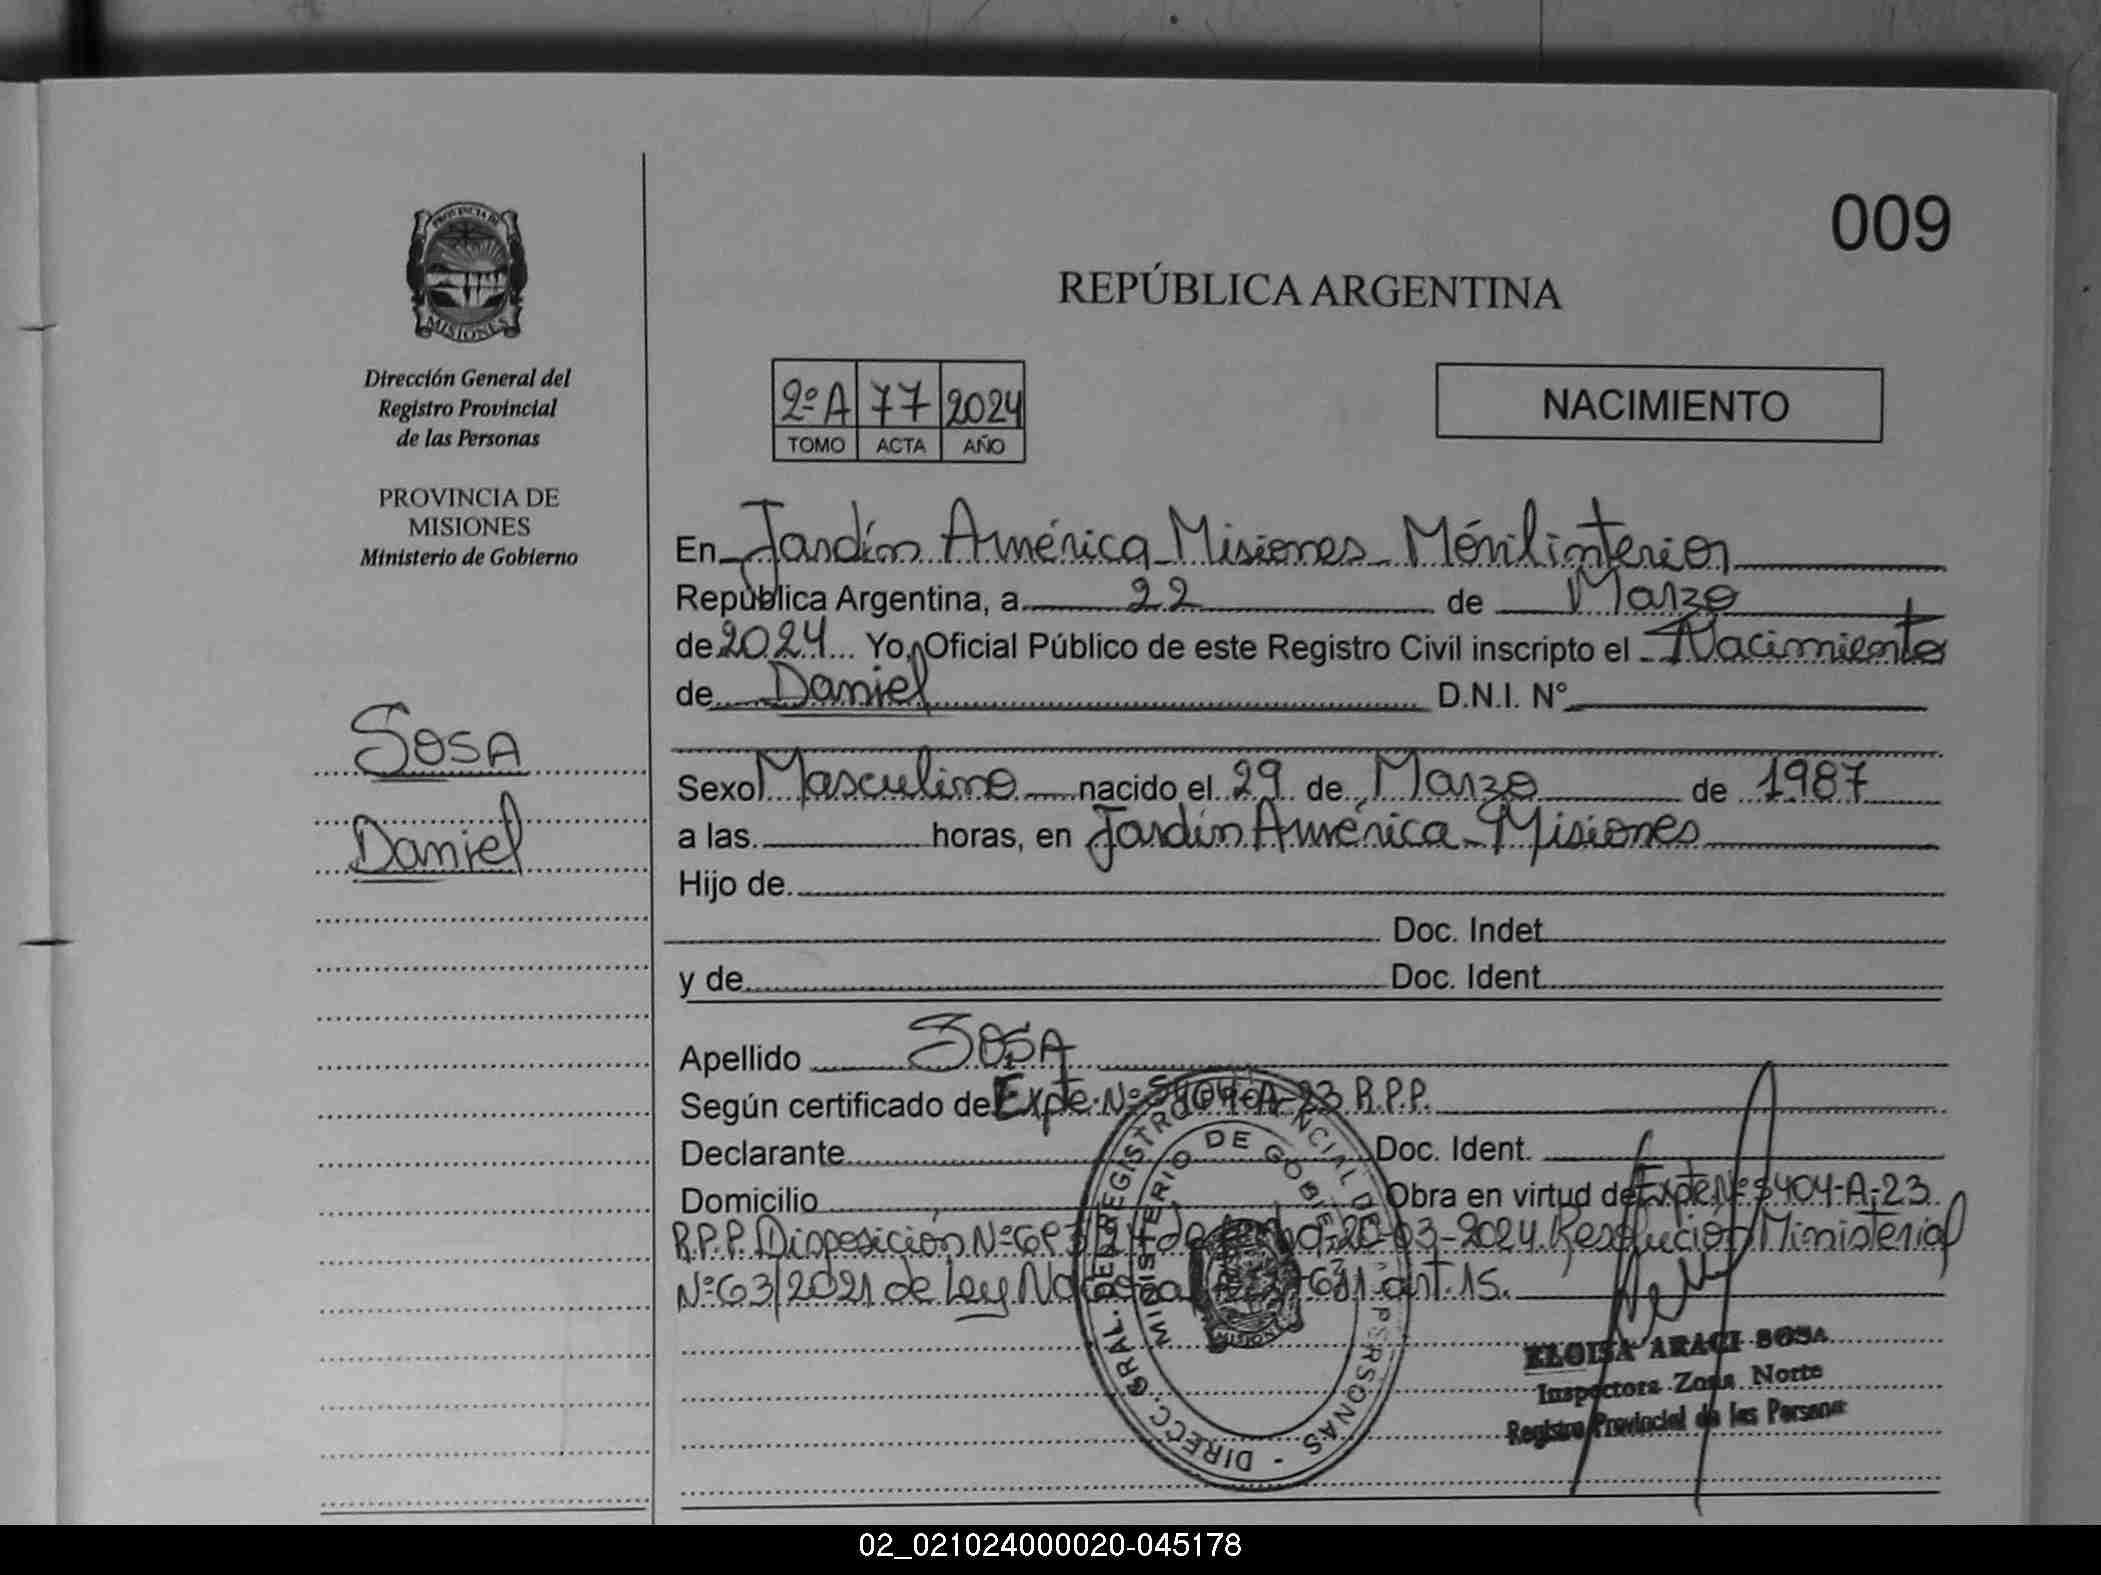 009
PROVINCIA DE
MISIONES
REPÚBLICA ARGENTINA
Dirección General del
Registro Provincial
de las Personas
PROVINCIA DE
MISIONES
Ministerio de Gobierno
2º A 77 2024
TOMO ACTA AÑO
NACIMIENTO
Sosa
Daniel
En Jardín América Misiones Móvil interior
República Argentina, a 22 de Marzo
de 2024 Yo, Oficial Público de este Registro Civil inscripto el Nacimiento
de Daniel D.N.I. N°
Sexo Masculino nacido el 29 de Marzo de 1987
a las horas, en Jardín América Misiones
Hijo de
Doc. Indet
y de Doc. Ident
Apellido SOSA
Según certificado de Expte. Nº 5404-A-23 R.P.P.
Declarante Doc. Ident.
Domicilio Obra en virtud de Expte Nº 5404-A-23
R.P.P. Disposición Nº de 20-03-2024 Resolución Ministerial
Nº 63/2021 de Ley art. 15.
DIRECC. GRAL. DEL REGISTRO PROVINCIAL DE LAS PERSONAS
MINISTERIO DE GOBIERNO
MISIONES
ELOISA ARACI SOSA
Inspectora Zona Norte
Registro Provincial de las Personas
02_021024000020-045178